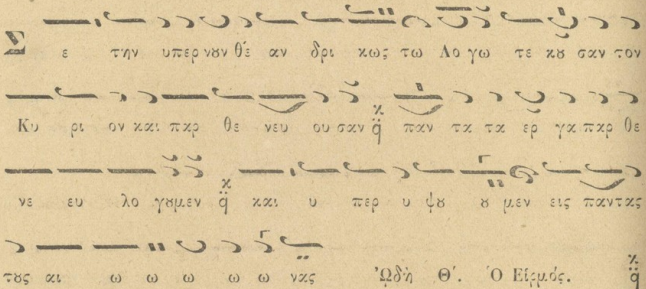 Σ ε την υπερ νουν θε αν δρι κως τω Λο γω τε κου σαν τον
Κυ ρι ον και παρ θε νευ ου σαν παν τα τα ερ γα παρ θε
νε ευ λο γουμεν και υ περ υ ψου ου μεν εις παντας
τους αι ω ω ω ω ω νας Ὠδὴ Θʹ. Ὁ Εἱρμός.